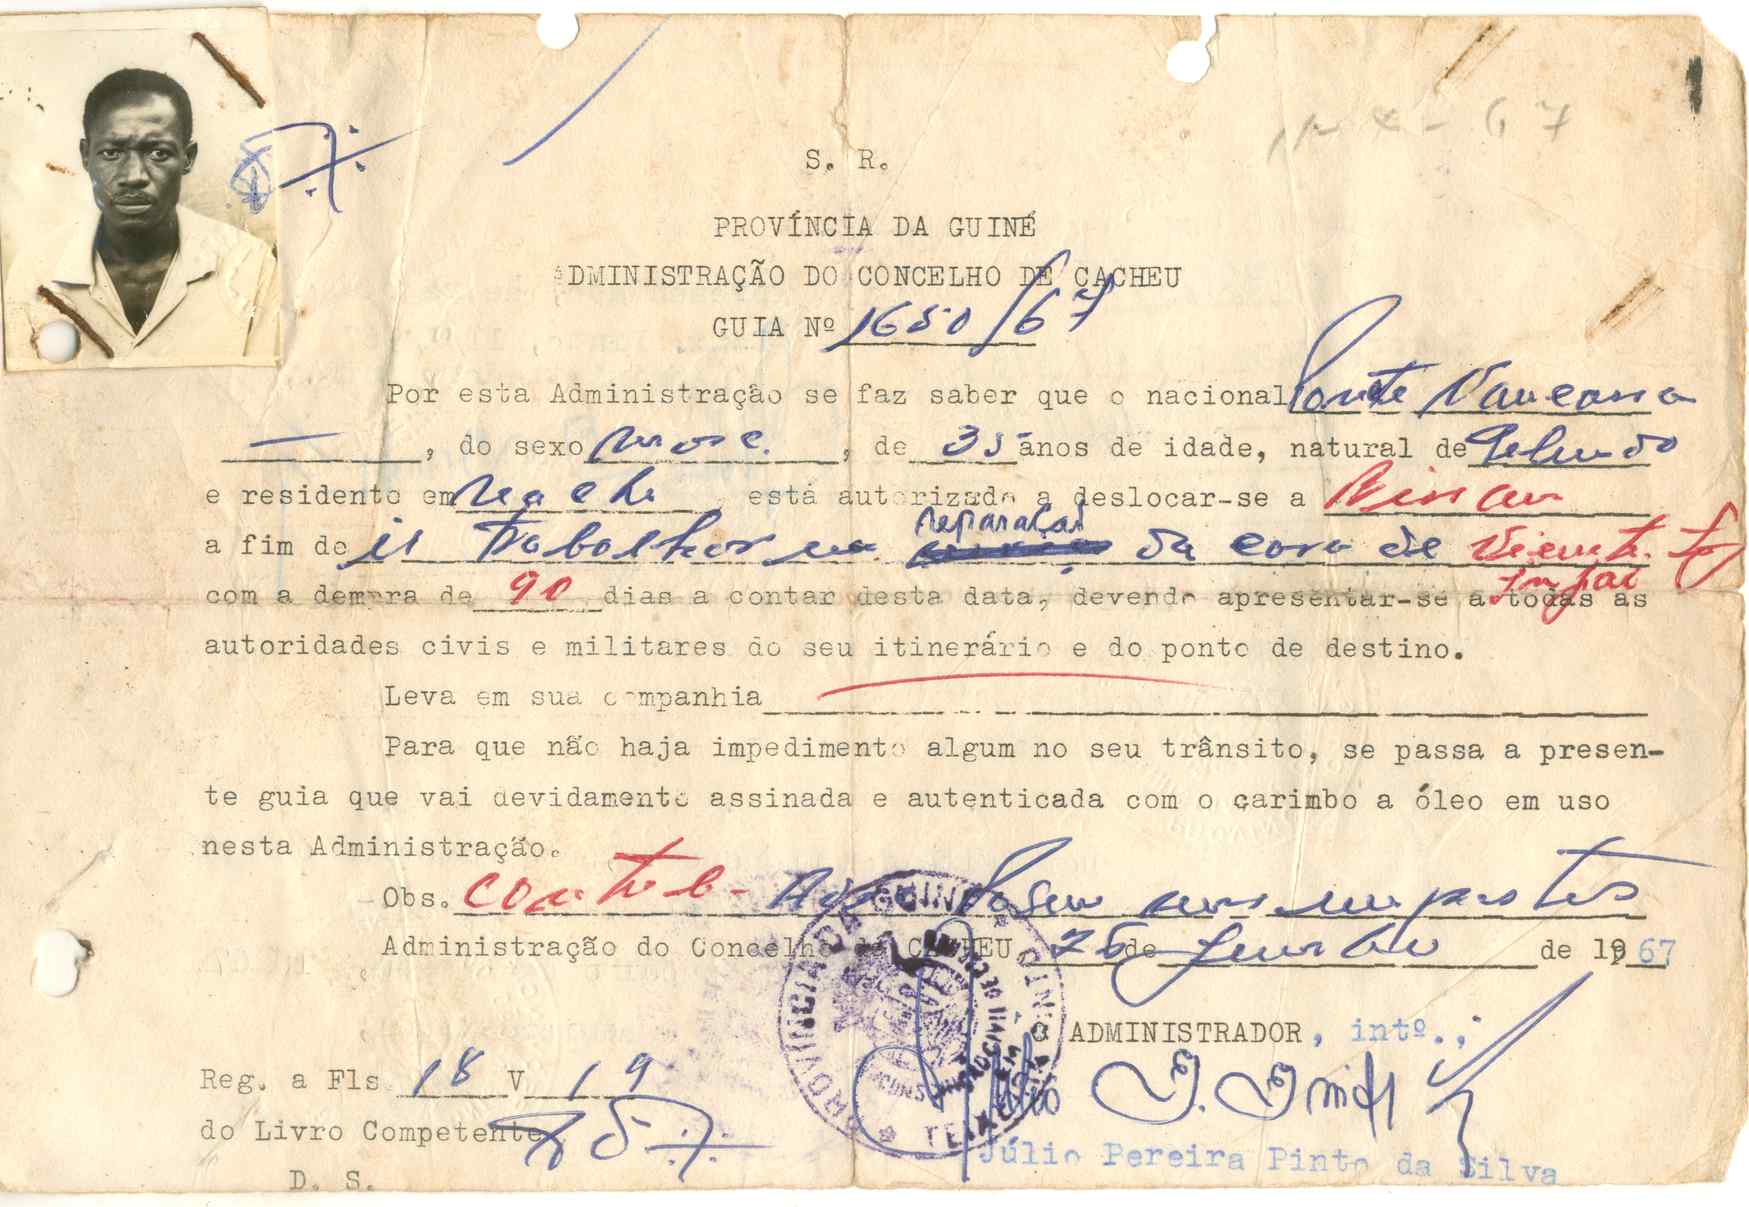 S. R.
PROVÍNCIA DA GUINÉ
ADMINISTRAÇÃO DO CONCELHO DE CACHEU
GUIA Nº 1650/67
Por esta Administração se faz saber que o nacional
—, do sexo masc., de 35 anos de idade, natural de
e residente em está autorizado a deslocar-se a
a fim de ir trabalhar na reparação da casa de Vicente
com a demora de 90 dias a contar desta data, devendo apresentar-se a todas as
autoridades civis e militares do seu itinerário e do ponto de destino.
Leva em sua companhia
Para que não haja impedimento algum no seu trânsito, se passa a presen-
te guia que vai devidamente assinada e autenticada com o carimbo a óleo em uso
nesta Administração.
Obs. impostos
Administração do Concelho de CACHEU 26 de de 1967
PROVINCIA DA GUINÉ
ADMINISTRADOR, intº.,
Reg. a Fls 18 V 19
do Livro Competente
Júlio Pereira Pinto da Silva
D. S.